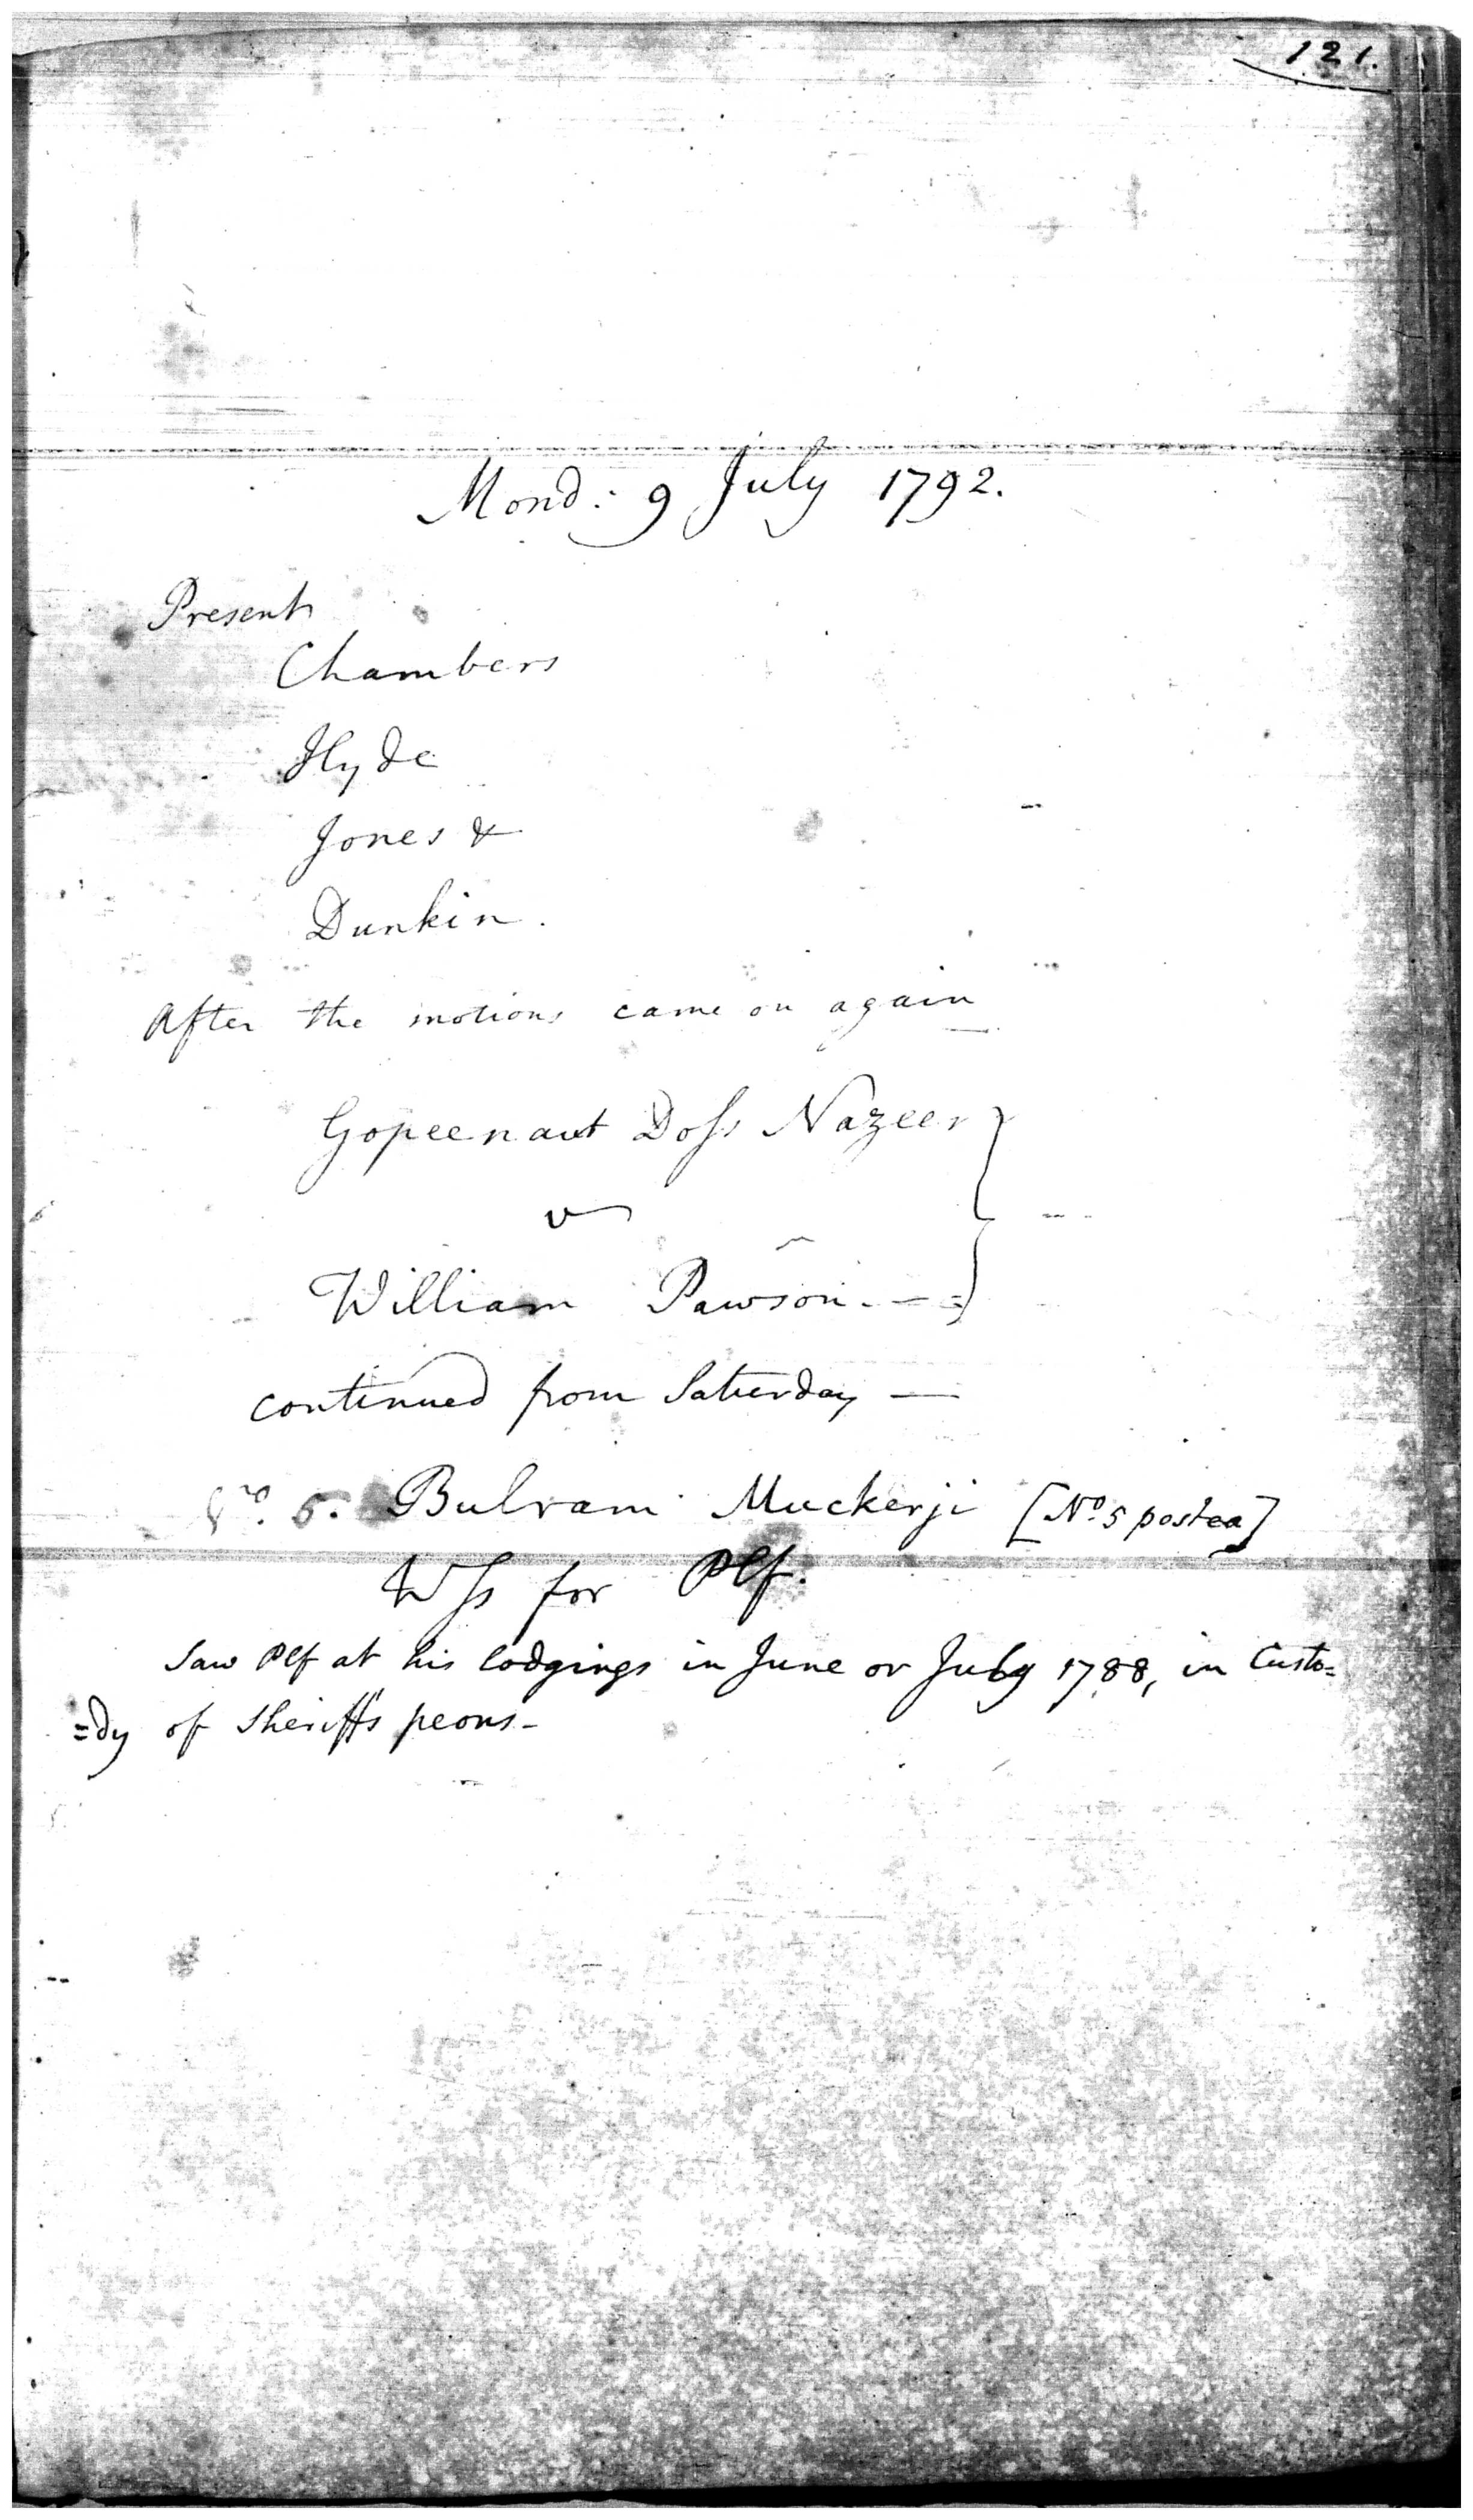 121.
Mond: 9 July 1792.
Present
Chambers
Hyde
Jones &
Dunkin.
After the motions came on again
Gopeenaut Doss Nazeer
v
William Pawson.
continued from Saturday —
No. 5. Bulram Muckerji [No 5 postea]
Wss for Plf.
Saw Plf at his lodgings in June or July 1788, in Custo=
=dy of Sheriffs peons-